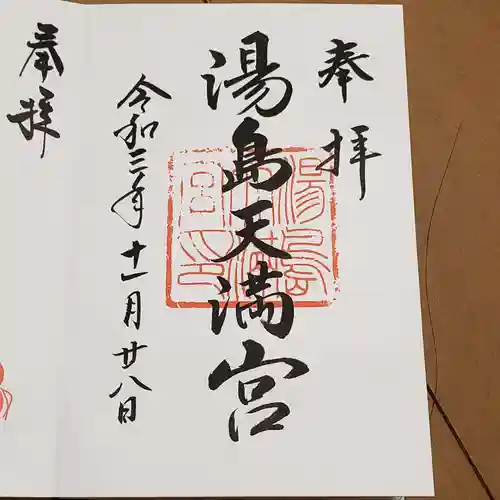 奉拝
湯島天満宮
令和三年十一月廿八日
奉拝